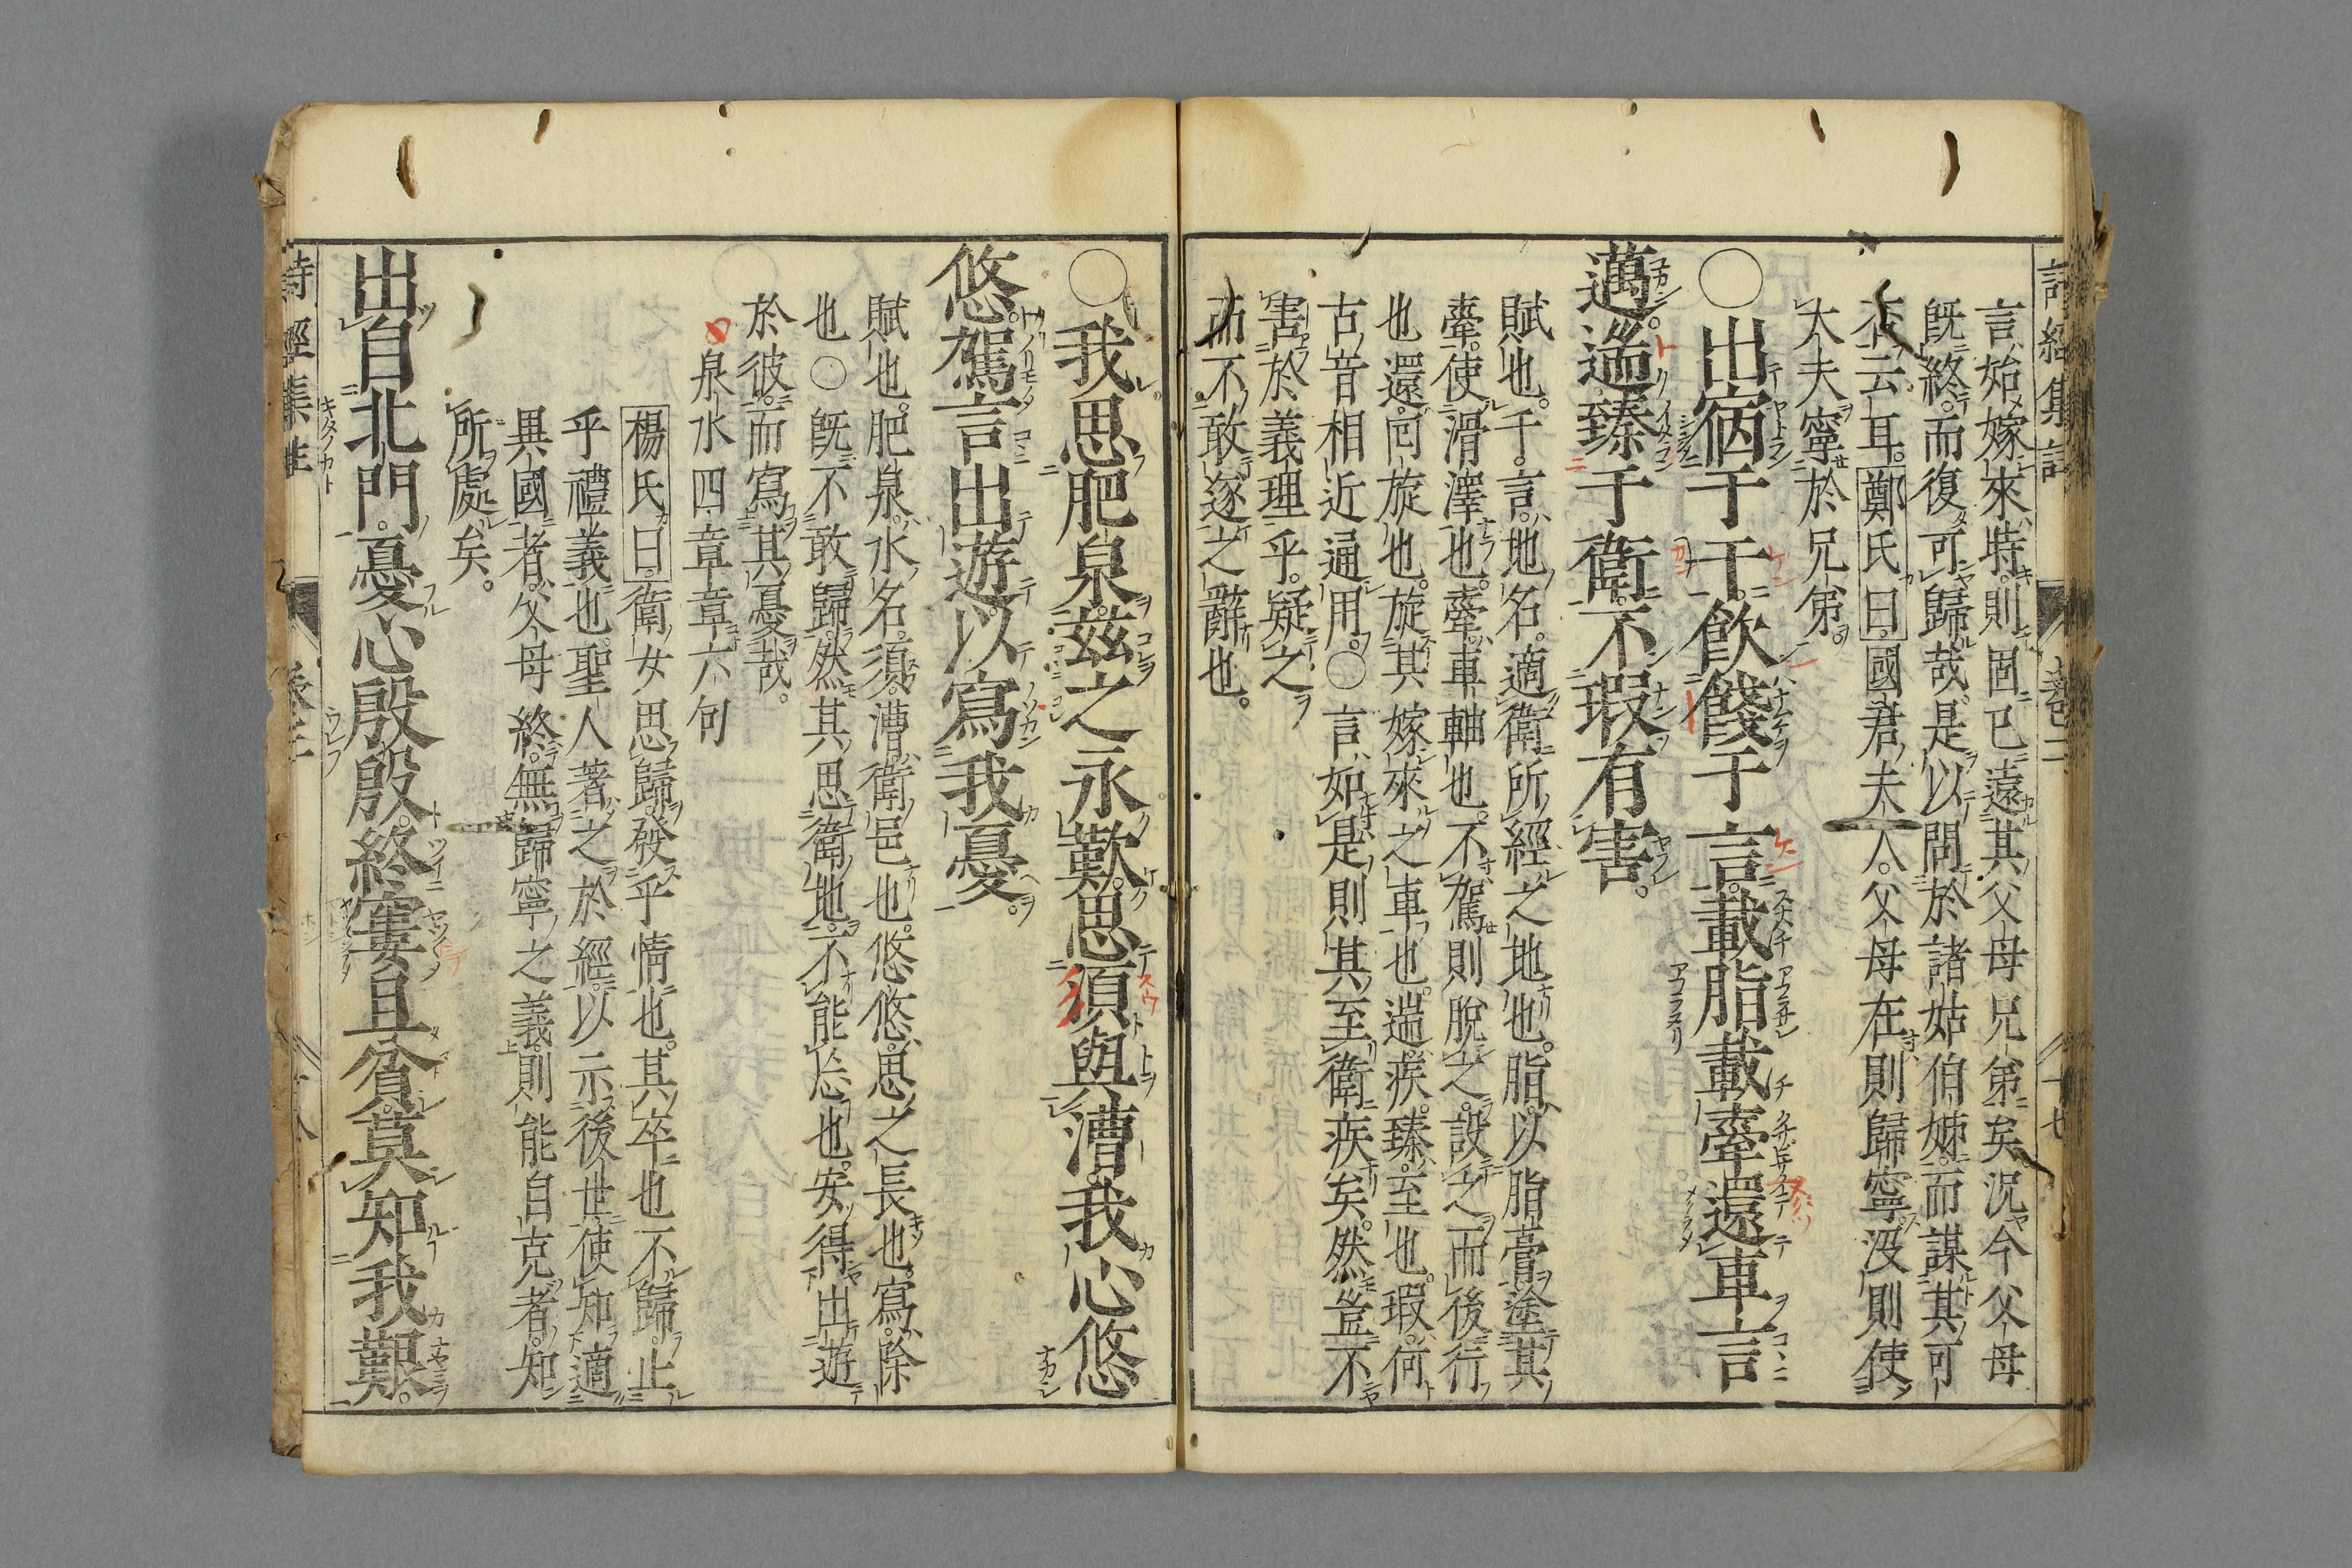 詩經集註 卷二 十七
言始嫁來時。則固已遠其父母兄弟矣。況今父母
旣終。而復可歸哉。是以問於諸姑伯姊。而謀其可
否云耳。鄭氏曰。國君夫人。父母在則歸寧。沒則使
大夫寧於兄弟。
○出宿于干飮餞于言載脂載舝還車言
邁遄臻于衛不瑕有害。
賦也。干。言。地名。適衛所經之地也。脂。以脂膏塗其
舝。使滑澤也。舝。車軸也。不駕則脫之。設之而後行
也還。囘旋也。旋其嫁來之車也。遄。疾。臻。至也。瑕。何
古音相近通用。○言如是則其至衛疾矣。然豈不
害於義理乎。疑之
而不敢遂之辭也。
○我思肥泉茲之永歎思須與漕我心悠
悠駕言出遊以寫我憂。
賦也。肥泉。水名。須。漕。衛邑也。悠悠。思之長也。寫。除
也○旣不敢歸。然其思衛地。不能忘也。安得出遊
於彼。而寫其憂哉。
泉水四章章六句
楊氏曰。衛女思歸。發乎情也。其卒也不歸。止
乎禮義也。聖人著之於經。以示後世。使知適
異國者。父母終。無歸寧之義。則能自克者。知
所處矣。
出自北門。憂心殷殷。終窶且貧。莫知我艱。
詩經集註 卷二 十八